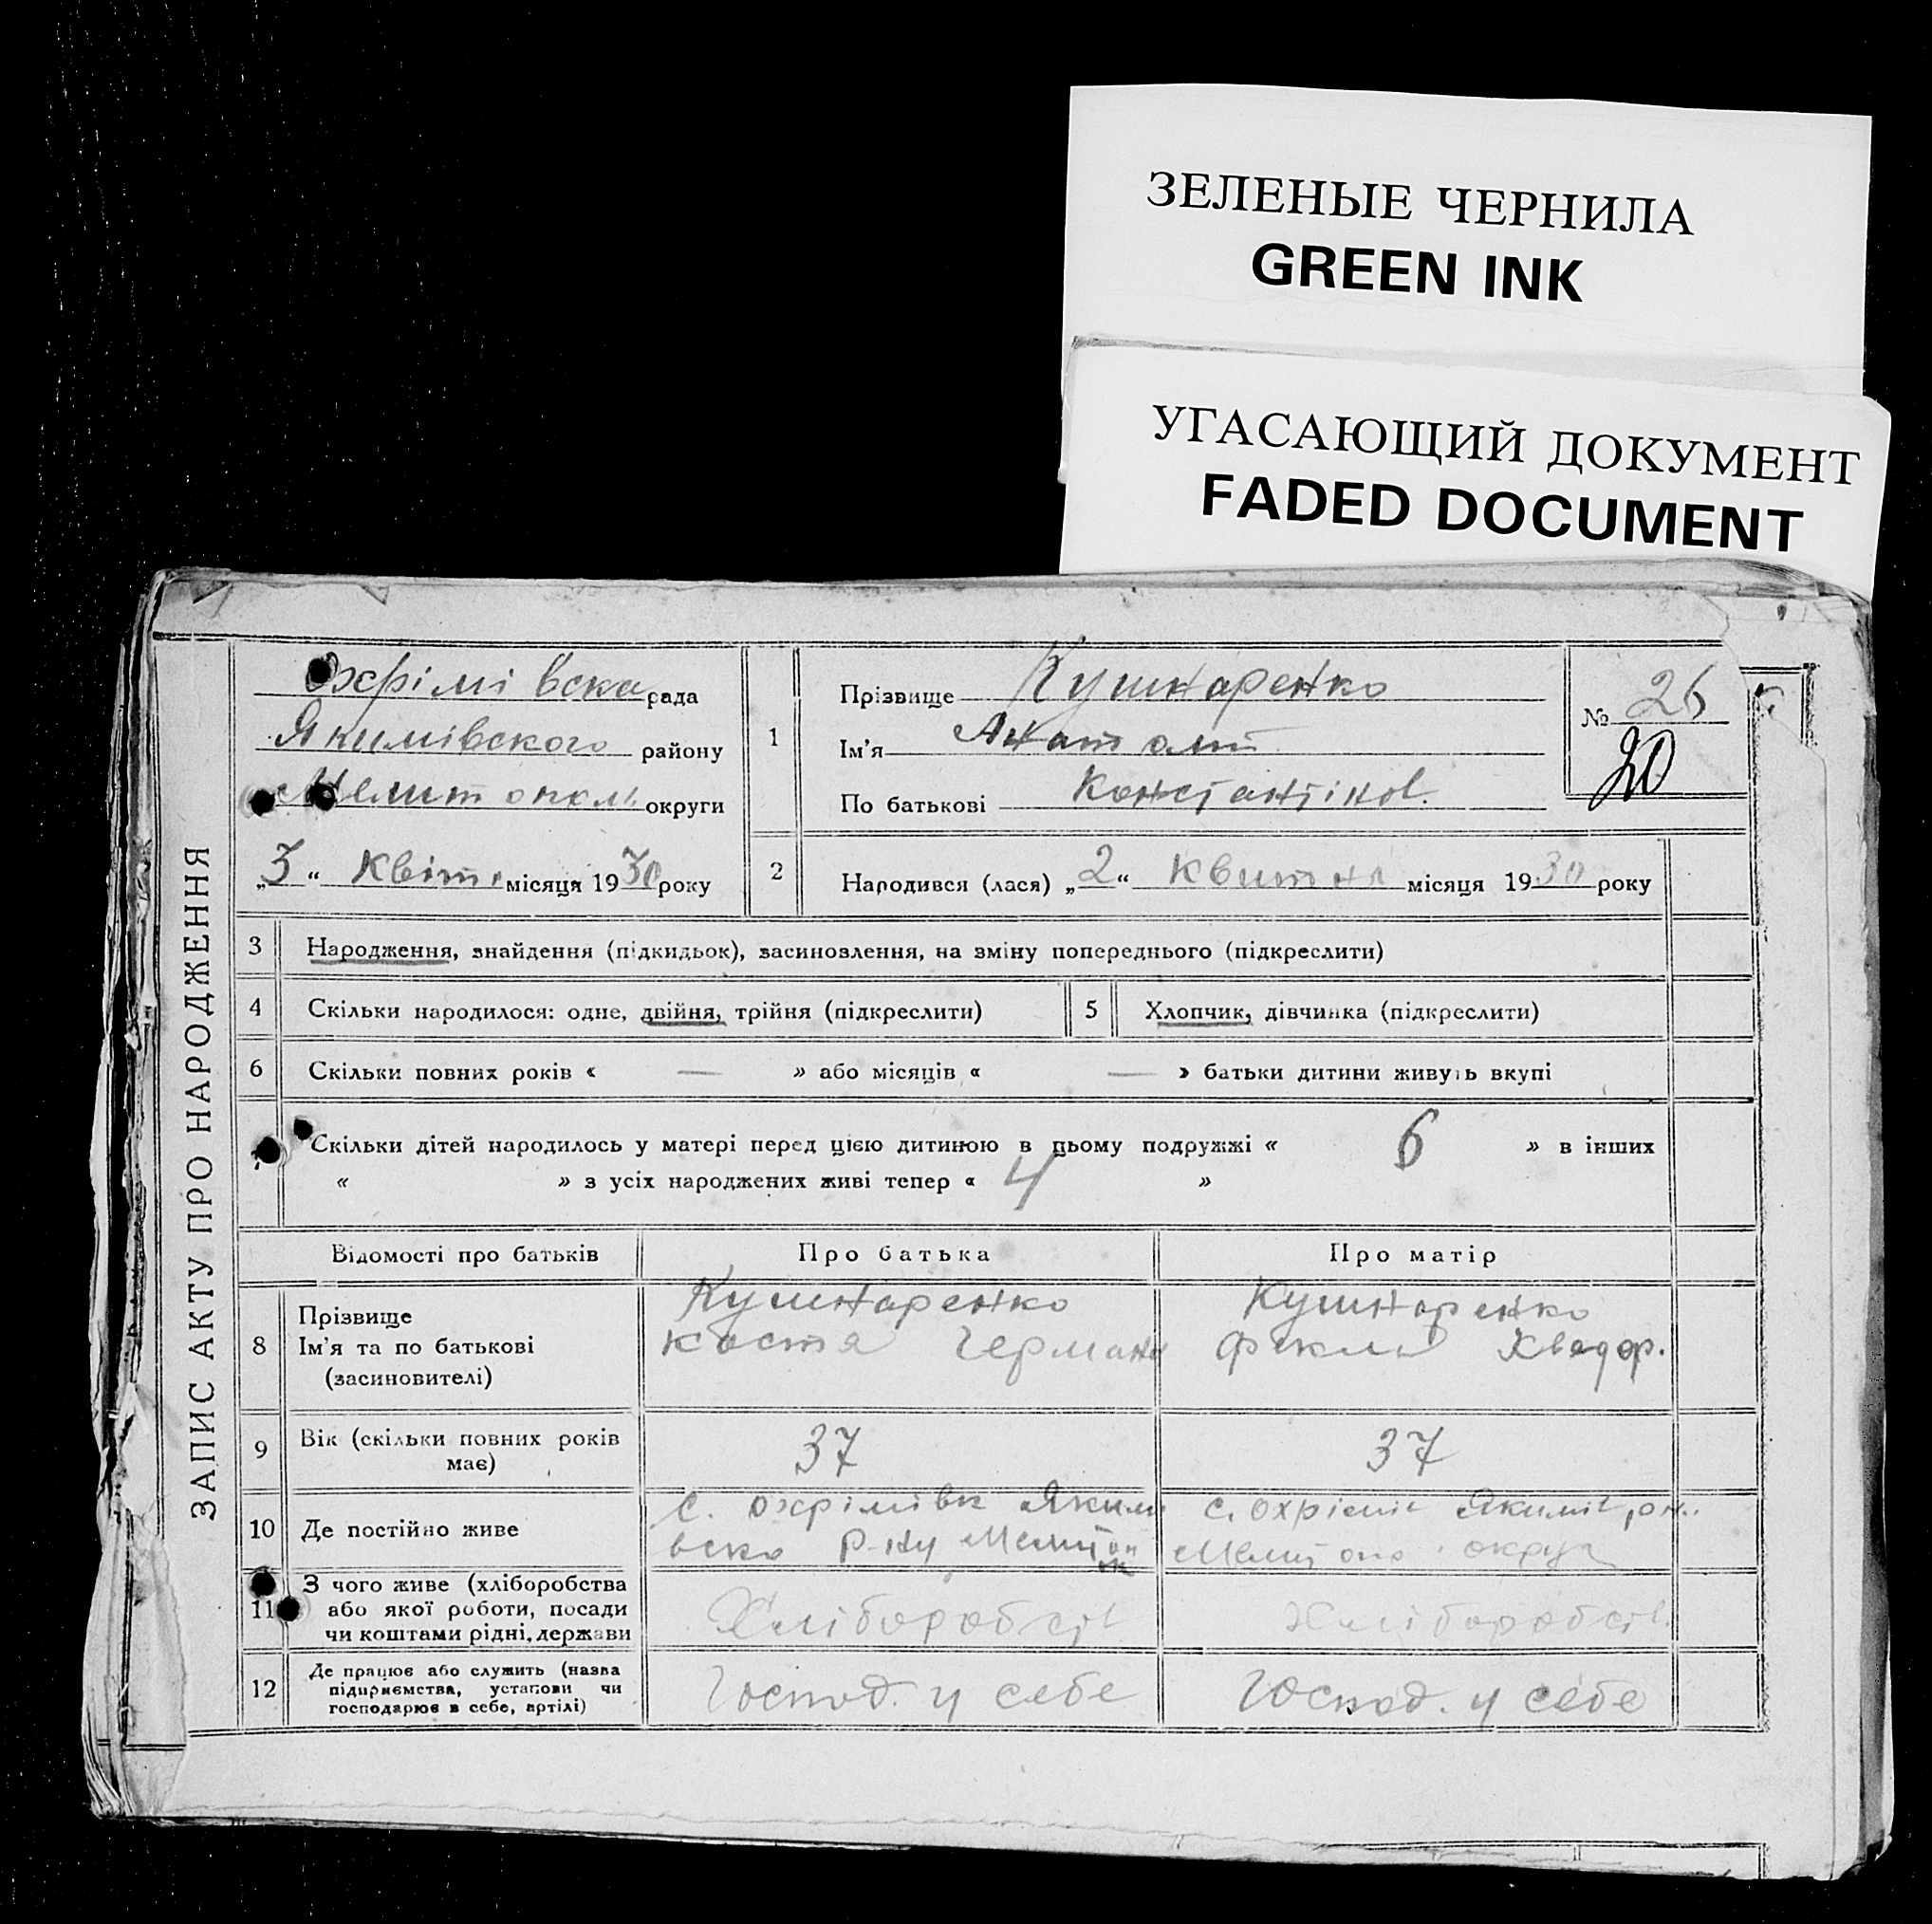 ЗЕЛЕНЫЕ ЧЕРНИЛА
GREEN INK
УГАСАЮЩИЙ ДОКУМЕНТ
FADED DOCUMENT
ЗАПИС АКТУ ПРО НАРОДЖЕННЯ
Охрімівска рада
Якимівского району
Мелитопол округи
„3“ Квітн місяця 1930 року
1
Прізвище Кушнаренко
Ім'я Анатолій
По батькові Констянтінов.
№ 26
20
2
Народився (лася) „2“ Квитня місяця 1930 року
3 Народження, знайдення (підкидьок), засиновлення, на зміну попереднього (підкреслити)
4 Скільки народилося: одне, двійня, трійня (підкреслити)
5 Хлопчик, дівчинка (підкреслити)
6 Скільки повних років « — » або місяців « — » батьки дитини живуть вкупі
Скільки дітей народилось у матері перед цією дитиною в цьому подружжі « 6 » в інших
« » з усіх народжених живі тепер « 4 »
Відомості про батьків Про батька Про матір
8 Прізвище
Ім'я та по батькові
(засиновителі)
Кушнаренко
Костя Герман
Кушнаренко
Фекла Хведор.
9 Вік (скільки повних років
має)
37
37
10 Де постійно живе
с. Охрімівк Якимі
вско р-ну Мелитоп
с. Охрімі Якимі
Мелитопо округ
11 З чого живе (хліборобства
або якої роботи, посади
чи коштами рідні, держави
Хліборобст
Хліборобст
12 Де працює або служить (назва
підприємства, установи чи
господарює в себе, артілі)
Господ. у себе
Господ. у себе